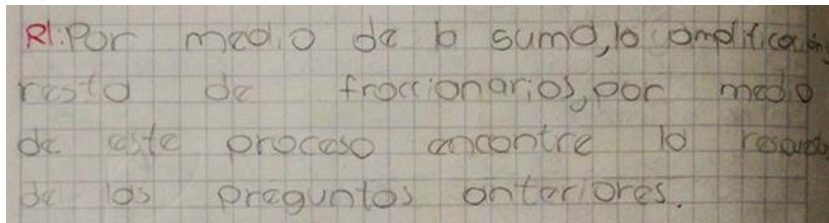 R/: Por medio de la suma, la amplificación,
resta de fraccionarios, por medio
de este proceso encontre la respuesta
de las preguntas anteriores.